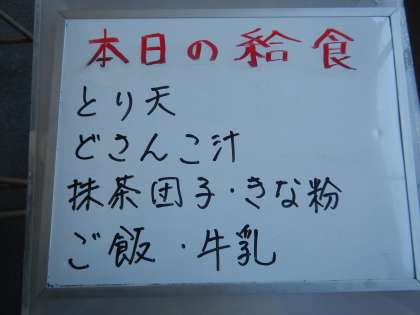 本日の給食
とり天
どさんこ汁
抹茶団子・きな粉
ご飯・牛乳